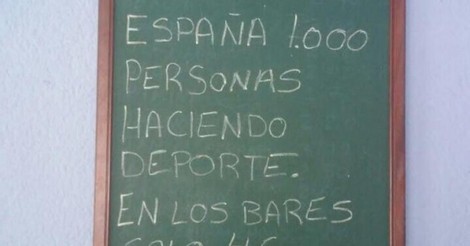 ESPAÑA 1.000
PERSONAS
HACIENDO
DEPORTE.
EN LOS BARES